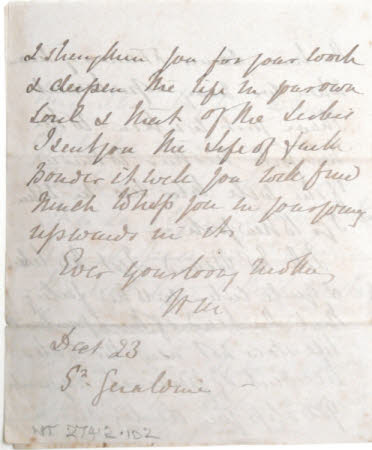 & strengthen you for your work
& deepen the life in your own
soul & that of the Sisters
I sent you the Life of Faith
Ponder it well you will find
much to help you in your journey
upwards in it.
Ever your loving Mother
Dect 23
Sr. Geraldine
NT 2742.102